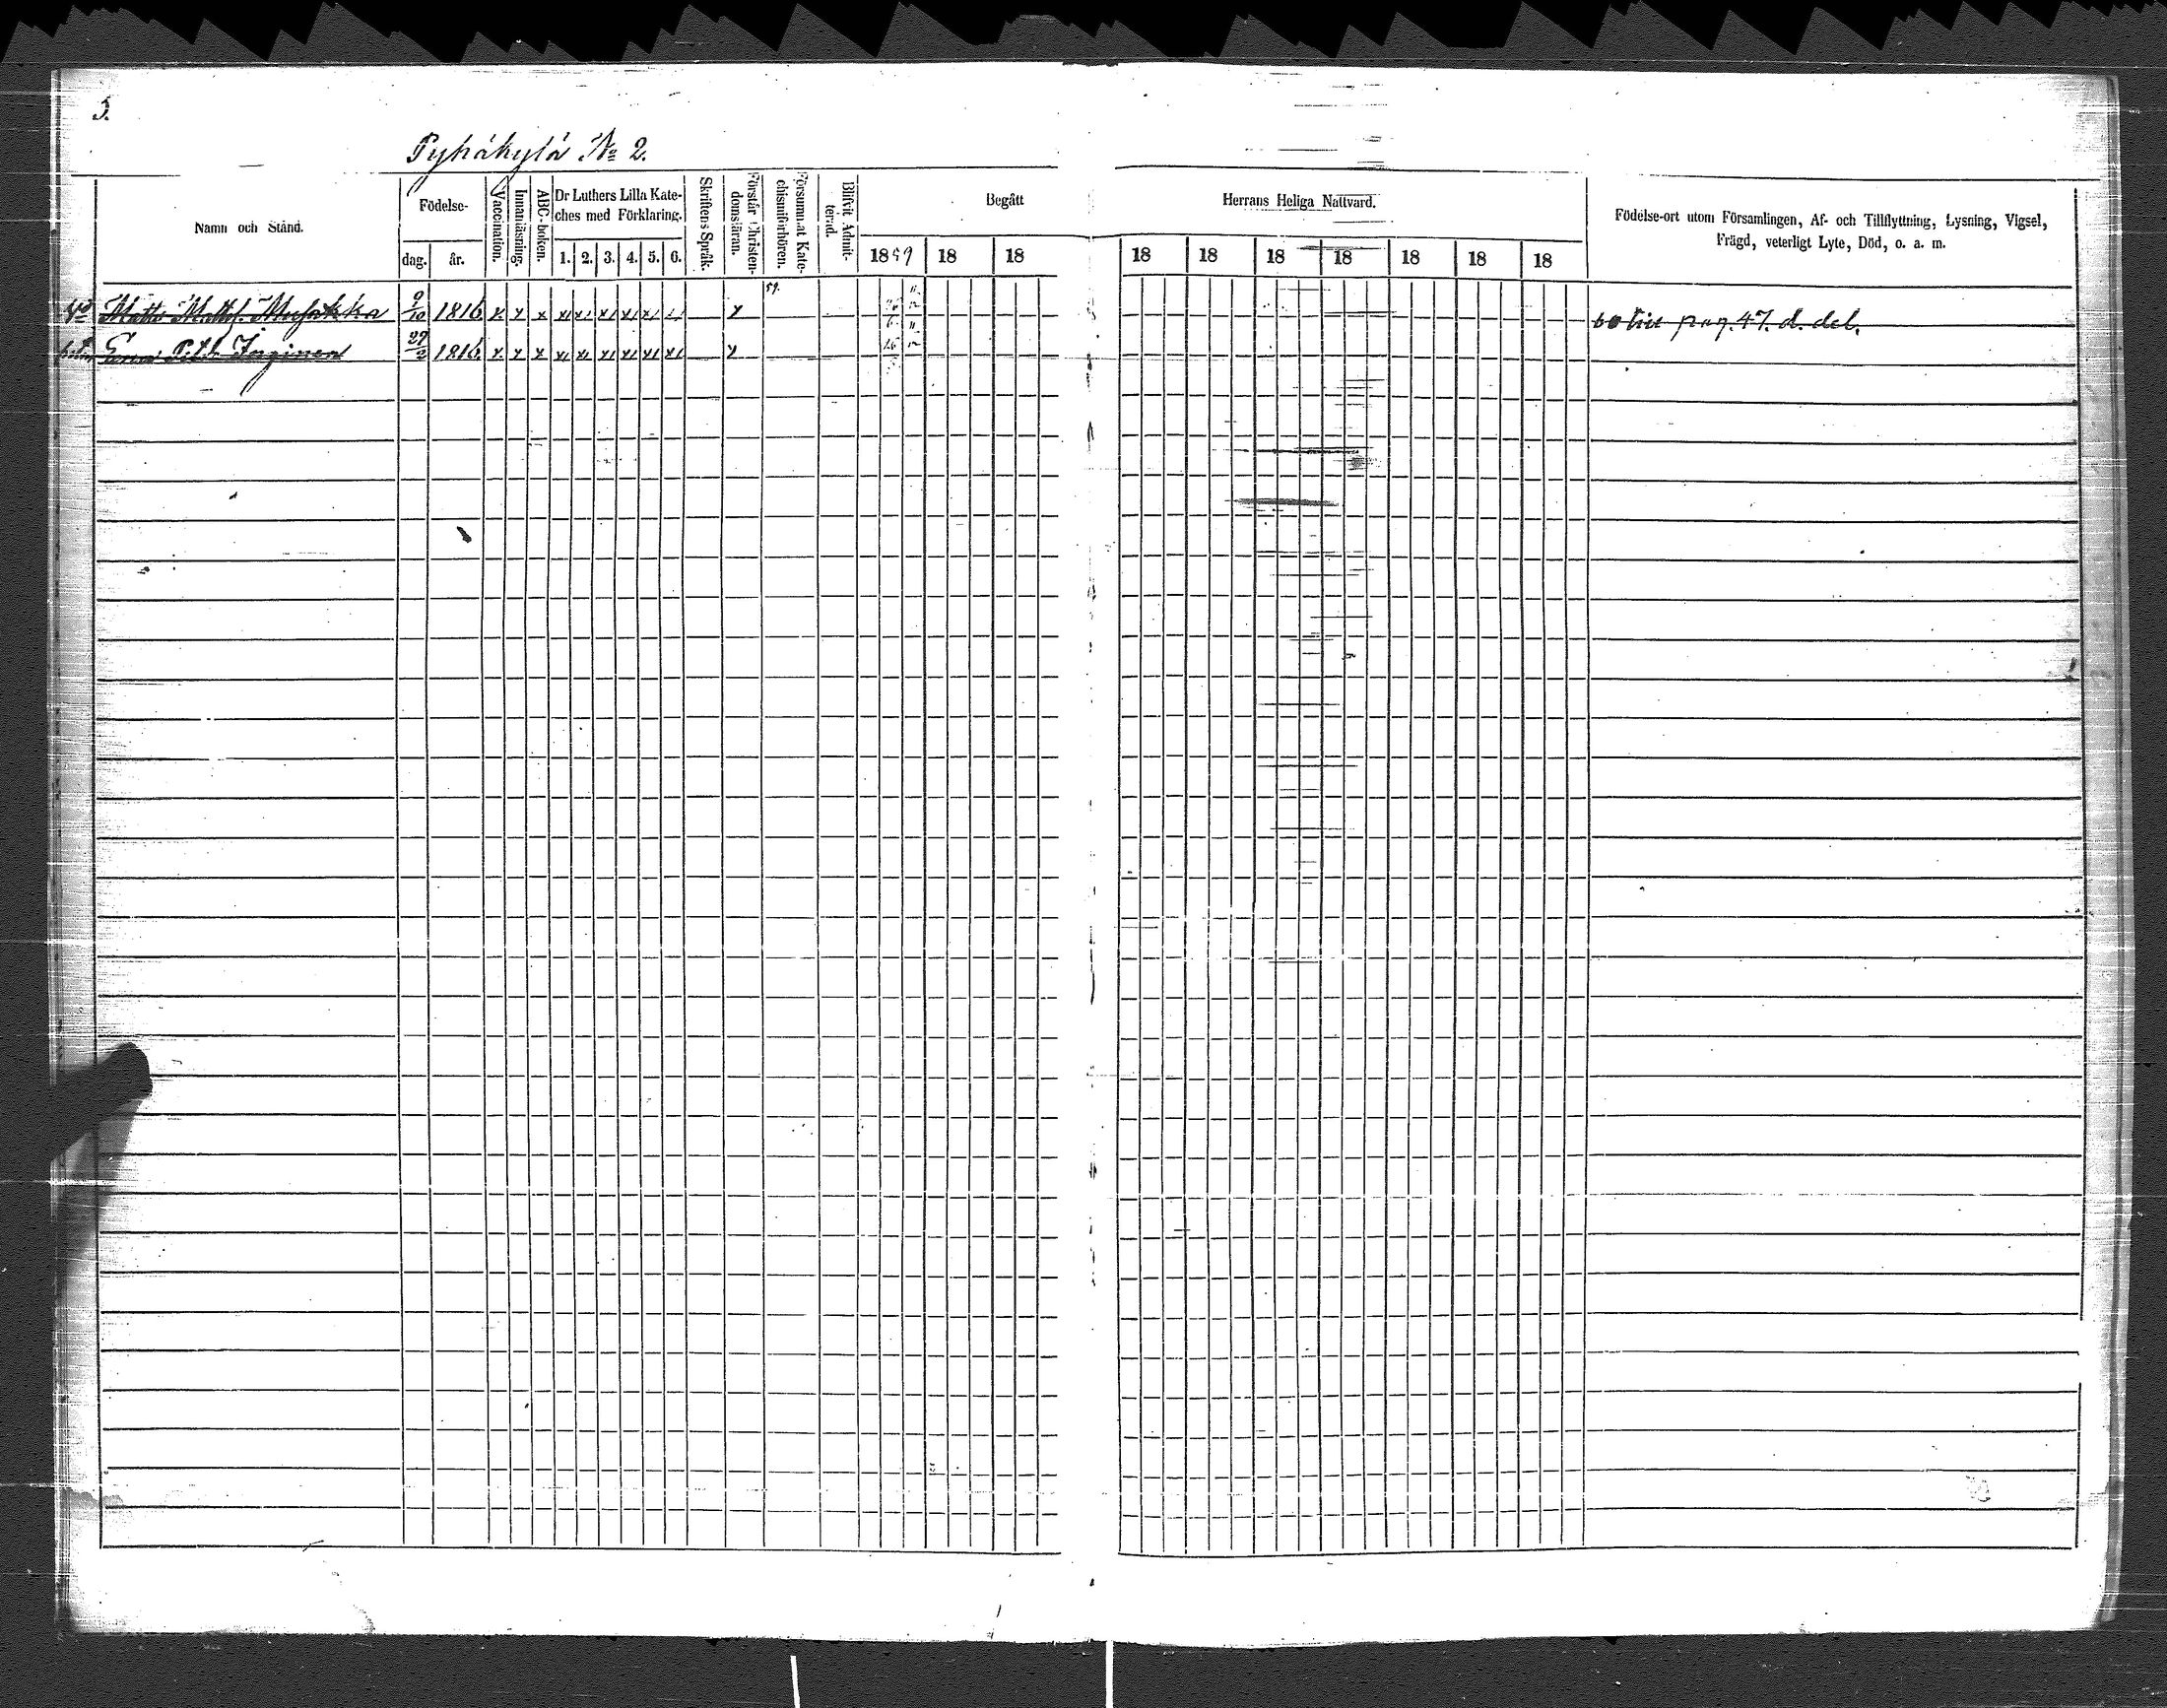 5.
Pyhäkylä No 2.
Namn och Stånd.
Födelse-
dag.
år.
Vaccination.
Innanläsning.
ABC-boken.
Dr Luthers Lilla Kate-
ches med Förklaring.
1. 2. 3. 4. 5. 6.
Skriftens Språk.
Förstår Christen-
domsläran.
Försummat Kate-
chismiförhören.
Blifvit Admit-
terad.
Begått
Herrans Heliga Nattvard.
1859 18 18 18 18 18 18 18 18 18
Födelse-ort utom Församlingen, Af- och Tillflyttning, Lysning, Vigsel,
Frägd, veterligt Lyte, Död, o. a. m.
59.
Matts Matts. 9/10 1816 x x x x x x x x x
pag. 47. d. del.
29/2 1816 x x x x x x x x x x